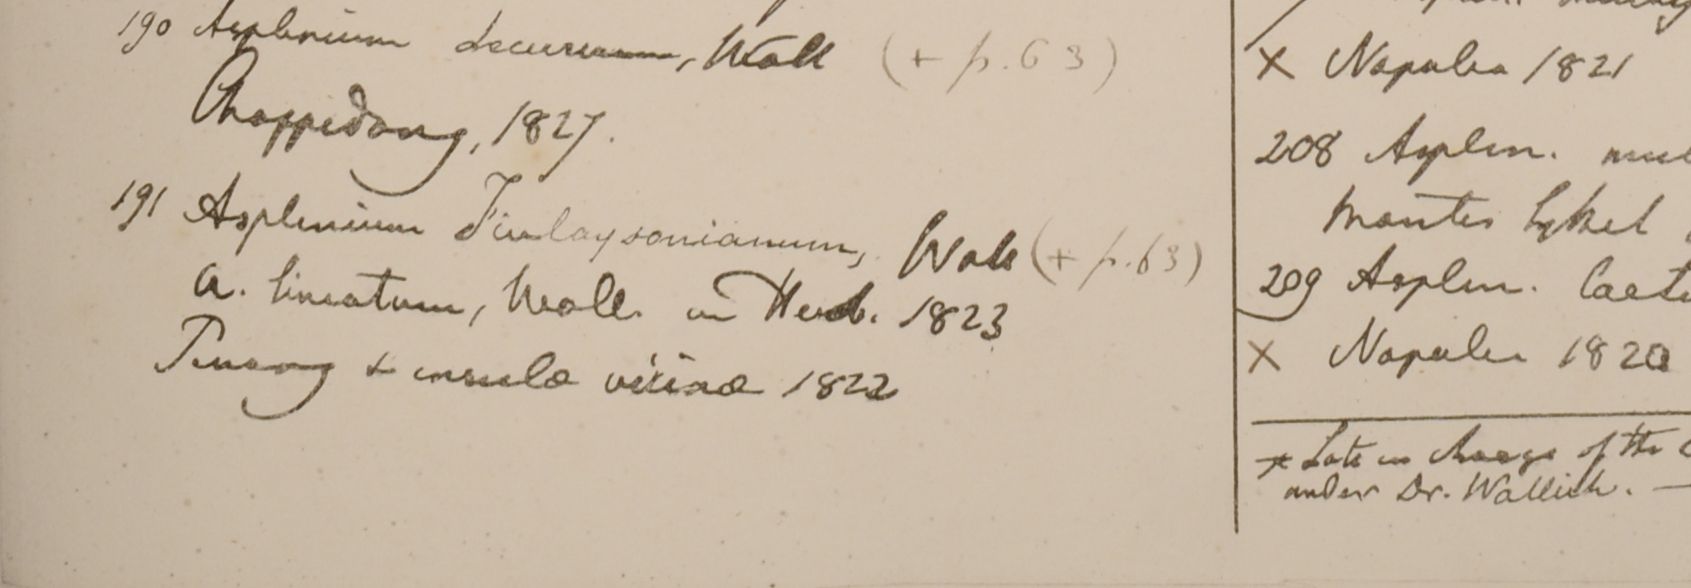 190 Asplenium decursum, Wall (+ p. 63)
Choppedong, 1827.
191 Asplenium Finlaysonianum, Wall (+ p. 63)
a. lineatum, Wall. in Herb. 1823
Penang & insulæ vicinæ 1822
× Napalia 1821
208 Asplen.
Montes Sylhet
209 Asplen. laet
× Napalia 1820
* Late in charge of the
under Dr. Wallich. —